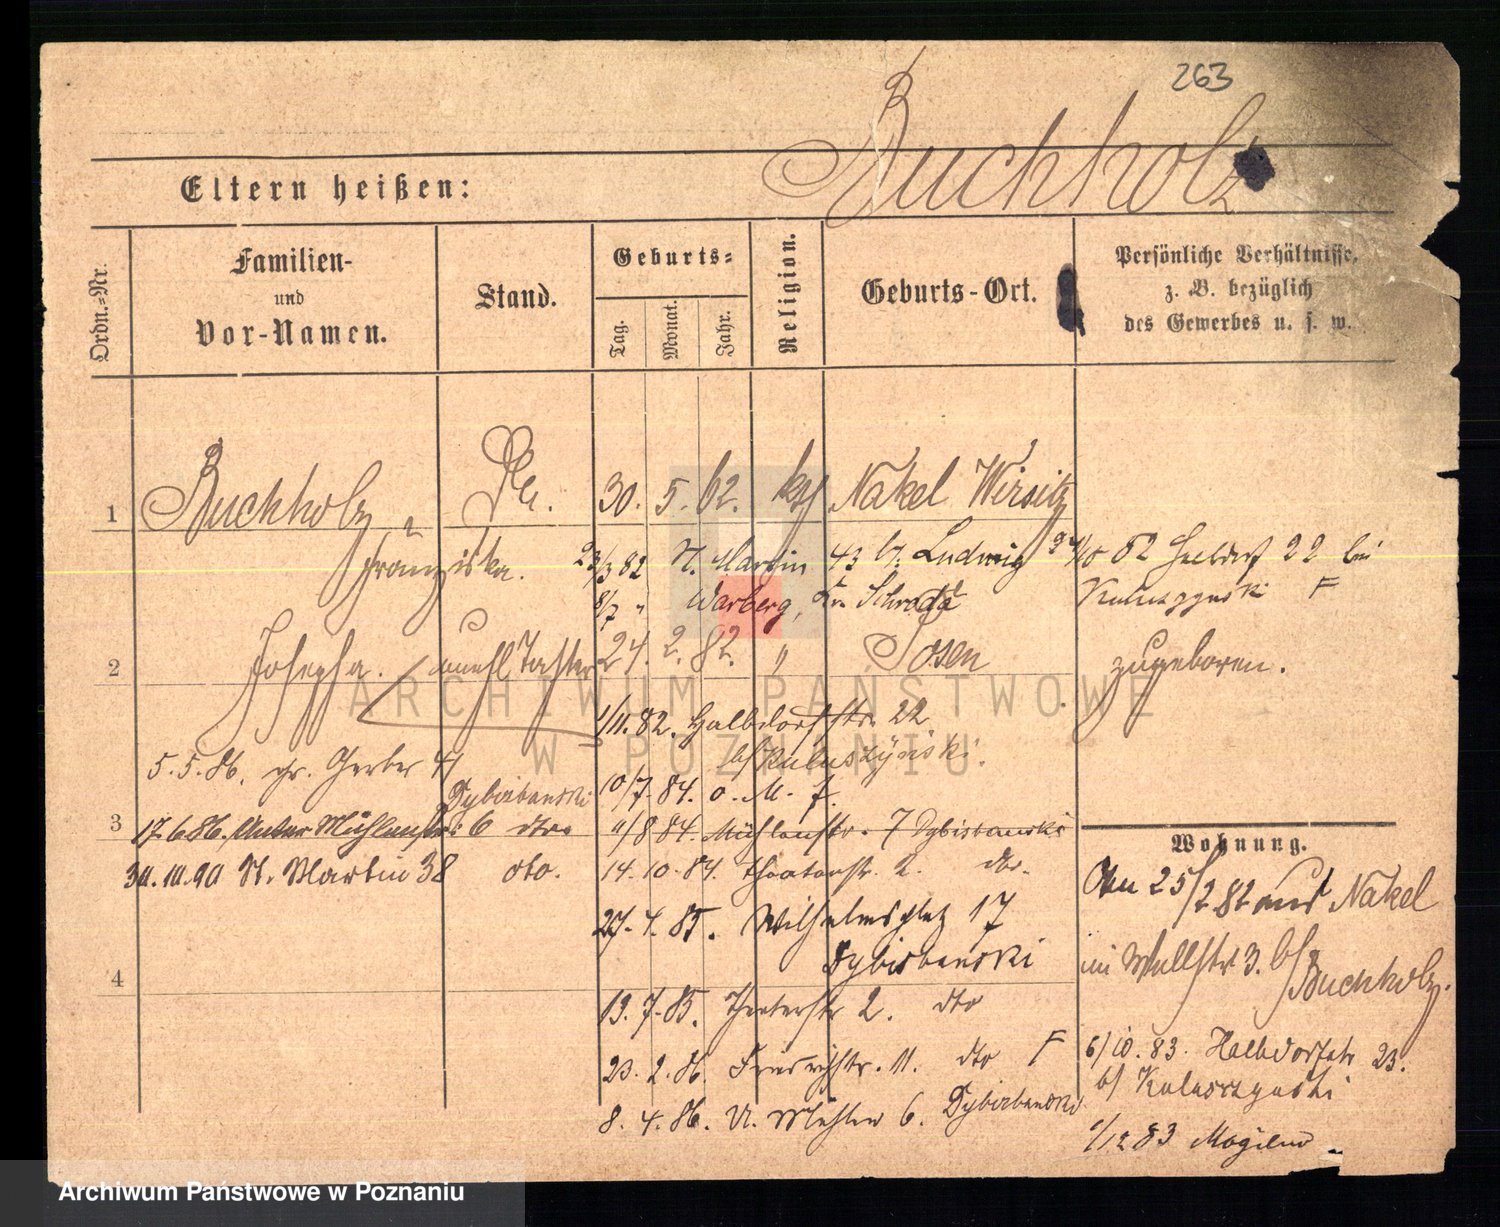 263
Buchholz
Eltern heißen:
Ordn.-Nr.
Familien-
und
Vor-Namen.
Stand.
Geburts-
Tag.
Monat.
Jahr.
Religion.
Geburts-Ort.
Persönliche Verhältnisse,
z. B. bezüglich
des Gewerbes u. s. w.
1 Buchholz 30. 5. 62. kth Nakel Wirsitz
Franziska. 23/3 82 St. Martin 43 b. Ludwig 24/5 82 Halbdorf 22 bei
8/7 " Warberg, Schroda F
2 Josepha. unehl. Tochter 24. 2. 82. " Posen zugeboren.
1/11. 82. Halbdorfstr. 22
b/ Kuluszynski.
5. 5. 86. gr. Gerber 41
Dybisbanski 10/7. 84. o. M. f.
3 17. 6. 86. Unter Mühlenstr. 6 dto. 11/8 84. Mühlenstr. 7 Dybisbanski
30. 10. 90 St. Martin 38 dto. 14. 10. 84. Theaterstr. 2. dto.
27. 4. 85. Wilhelmsplatz 17
Dybisbanski
4
19. 7. 85. Theaterstr 2. dto
23. 2. 86. Friedrichstr. 11. dto F
8. 4. 86. U. Mühlen 6. Dybisbanski
Wohnung.
Am 25/2 82 aus Nakel
in Wallstr 3. b/
Buchholz.
6/10. 83. Halbdorfstr 23.
b/ Kuluszynski
1/12 83 Mogilno
ARCHIWUM PAŃSTWOWE
W POZNANIU
Archiwum Państwowe w Poznaniu